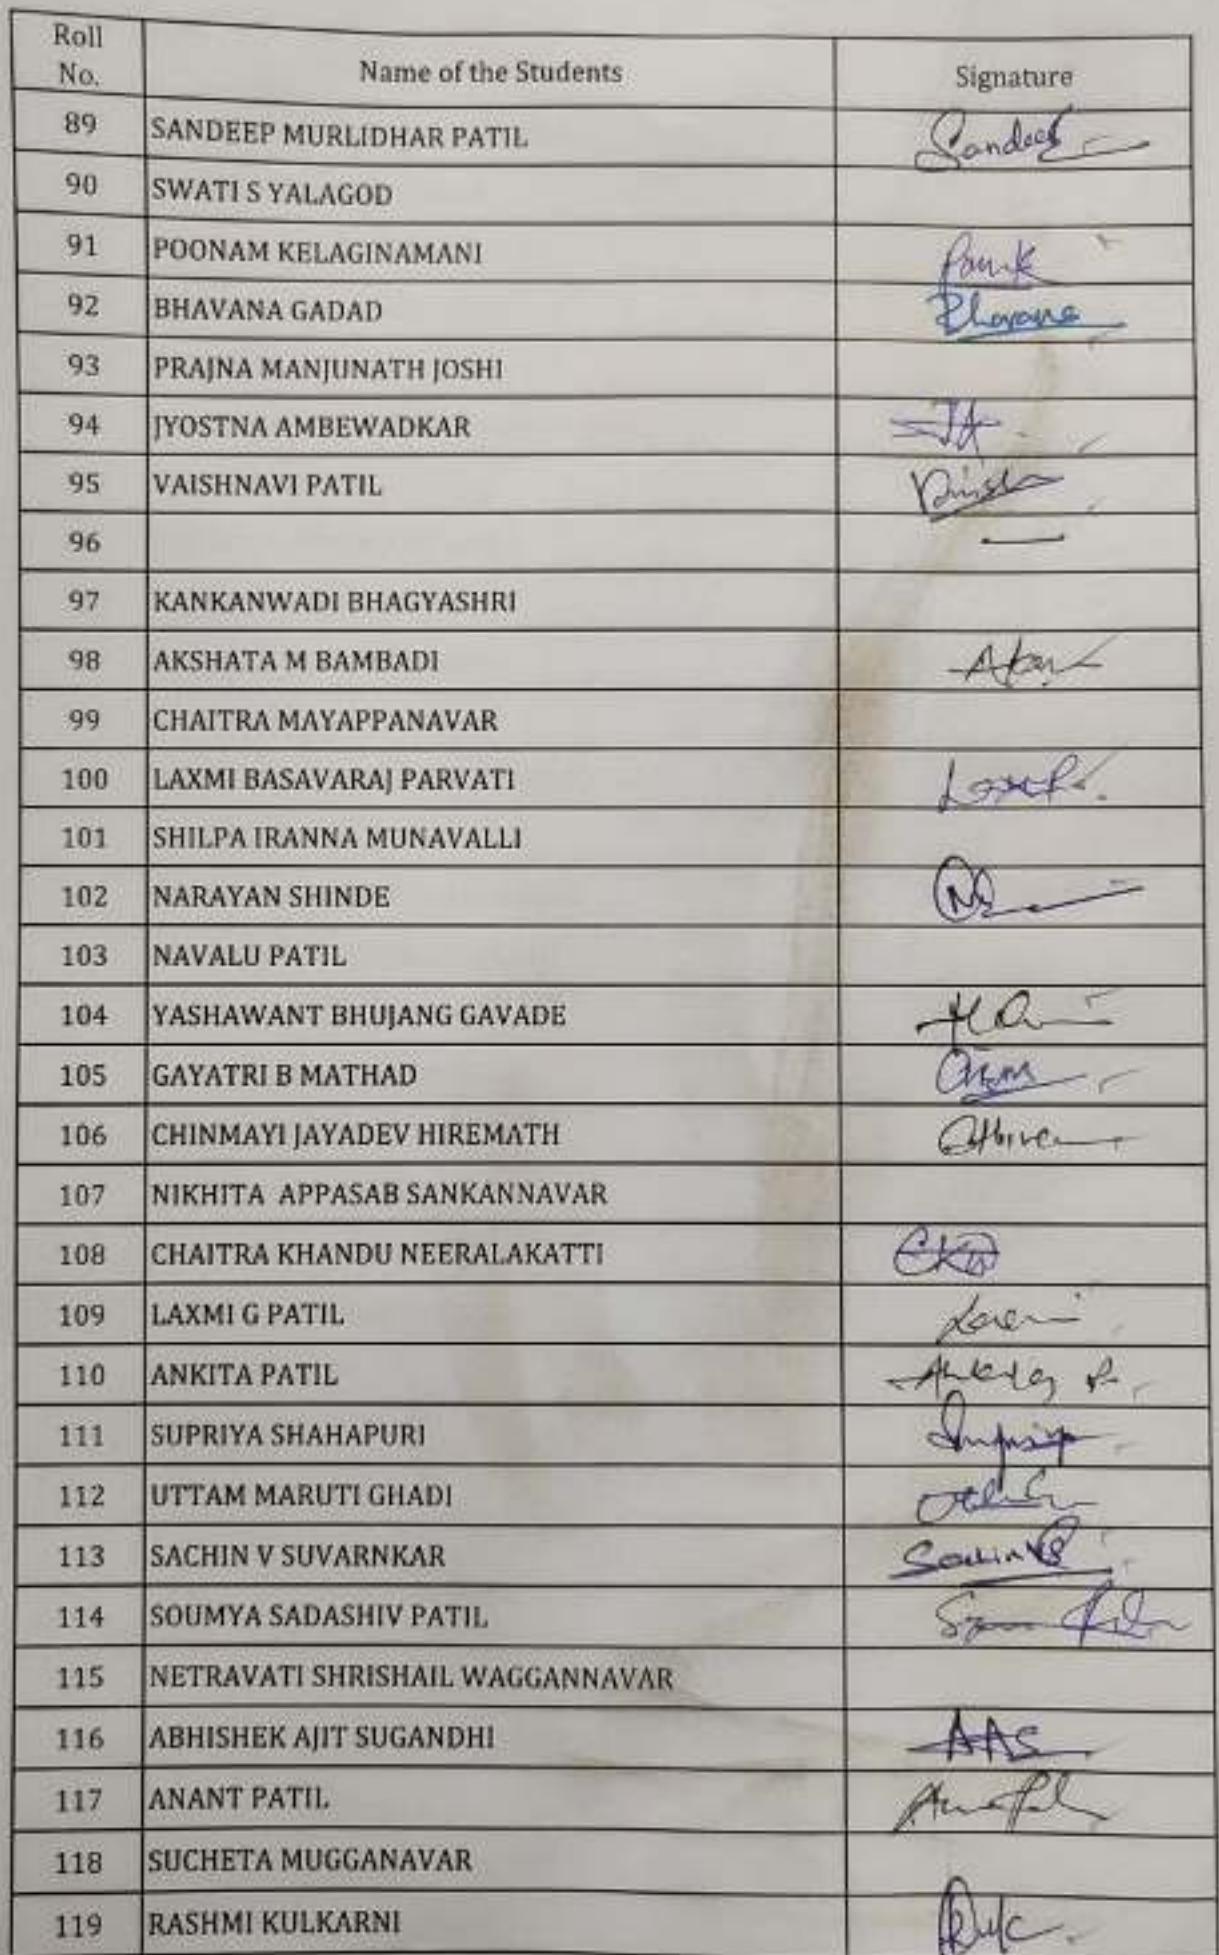 Roll No. Name of the Students Signature
89 SANDEEP MURLIDHAR PATIL Sandeep
90 SWATI S YALAGOD
91 POONAM KELAGINAMANI
92 BHAVANA GADAD Bhavana
93 PRAJNA MANJUNATH JOSHI
94 JYOSTNA AMBEWADKAR JA
95 VAISHNAVI PATIL
96 —
97 KANKANWADI BHAGYASHRI
98 AKSHATA M BAMBADI
99 CHAITRA MAYAPPANAVAR
100 LAXMI BASAVARAJ PARVATI
101 SHILPA IRANNA MUNAVALLI
102 NARAYAN SHINDE
103 NAVALU PATIL
104 YASHAWANT BHUJANG GAVADE
105 GAYATRI B MATHAD
106 CHINMAYI JAYADEV HIREMATH
107 NIKHITA APPASAB SANKANNAVAR
108 CHAITRA KHANDU NEERALAKATTI
109 LAXMI G PATIL
110 ANKITA PATIL
111 SUPRIYA SHAHAPURI
112 UTTAM MARUTI GHADI
113 SACHIN V SUVARNKAR
114 SOUMYA SADASHIV PATIL
115 NETRAVATI SHRISHAIL WAGGANNAVAR
116 ABHISHEK AJIT SUGANDHI AAS
117 ANANT PATIL
118 SUCHETA MUGGANAVAR
119 RASHMI KULKARNI